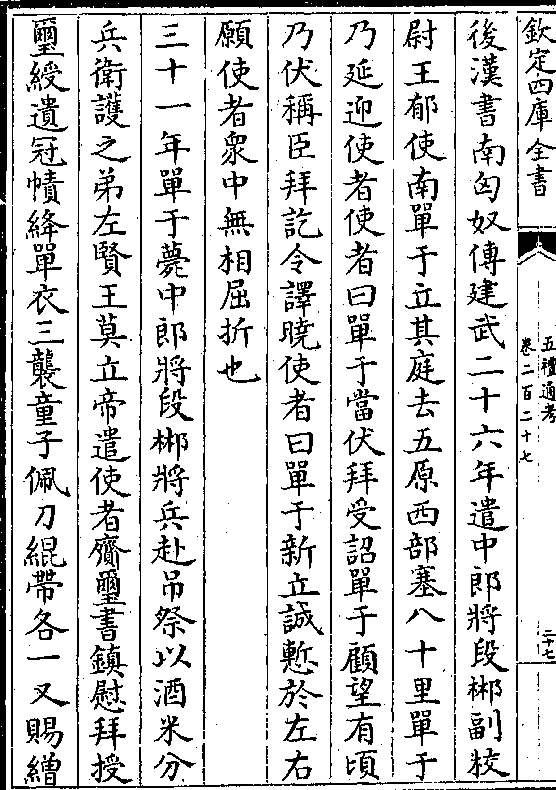 欽定四庫全書
五禮通考
卷二百二十七
二十七
後漢書南匈奴傳建武二十六年遣中郎將段郴副校
尉王郁使南單于立其庭去五原西部塞八十里單于
乃延迎使者使者曰單于當伏拜受詔單于顧望有頃
乃伏稱臣拜訖令譯曉使者曰單于新立誠慙於左右
願使者衆中無相屈折也
三十一年單于薨中郎將段郴將兵赴吊祭以酒米分
兵衛護之弟左賢王莫立帝遣使者齎璽書鎮慰拜授
璽綬遺冠幘絳單衣三襲童子佩刀緄帶各一又賜繒